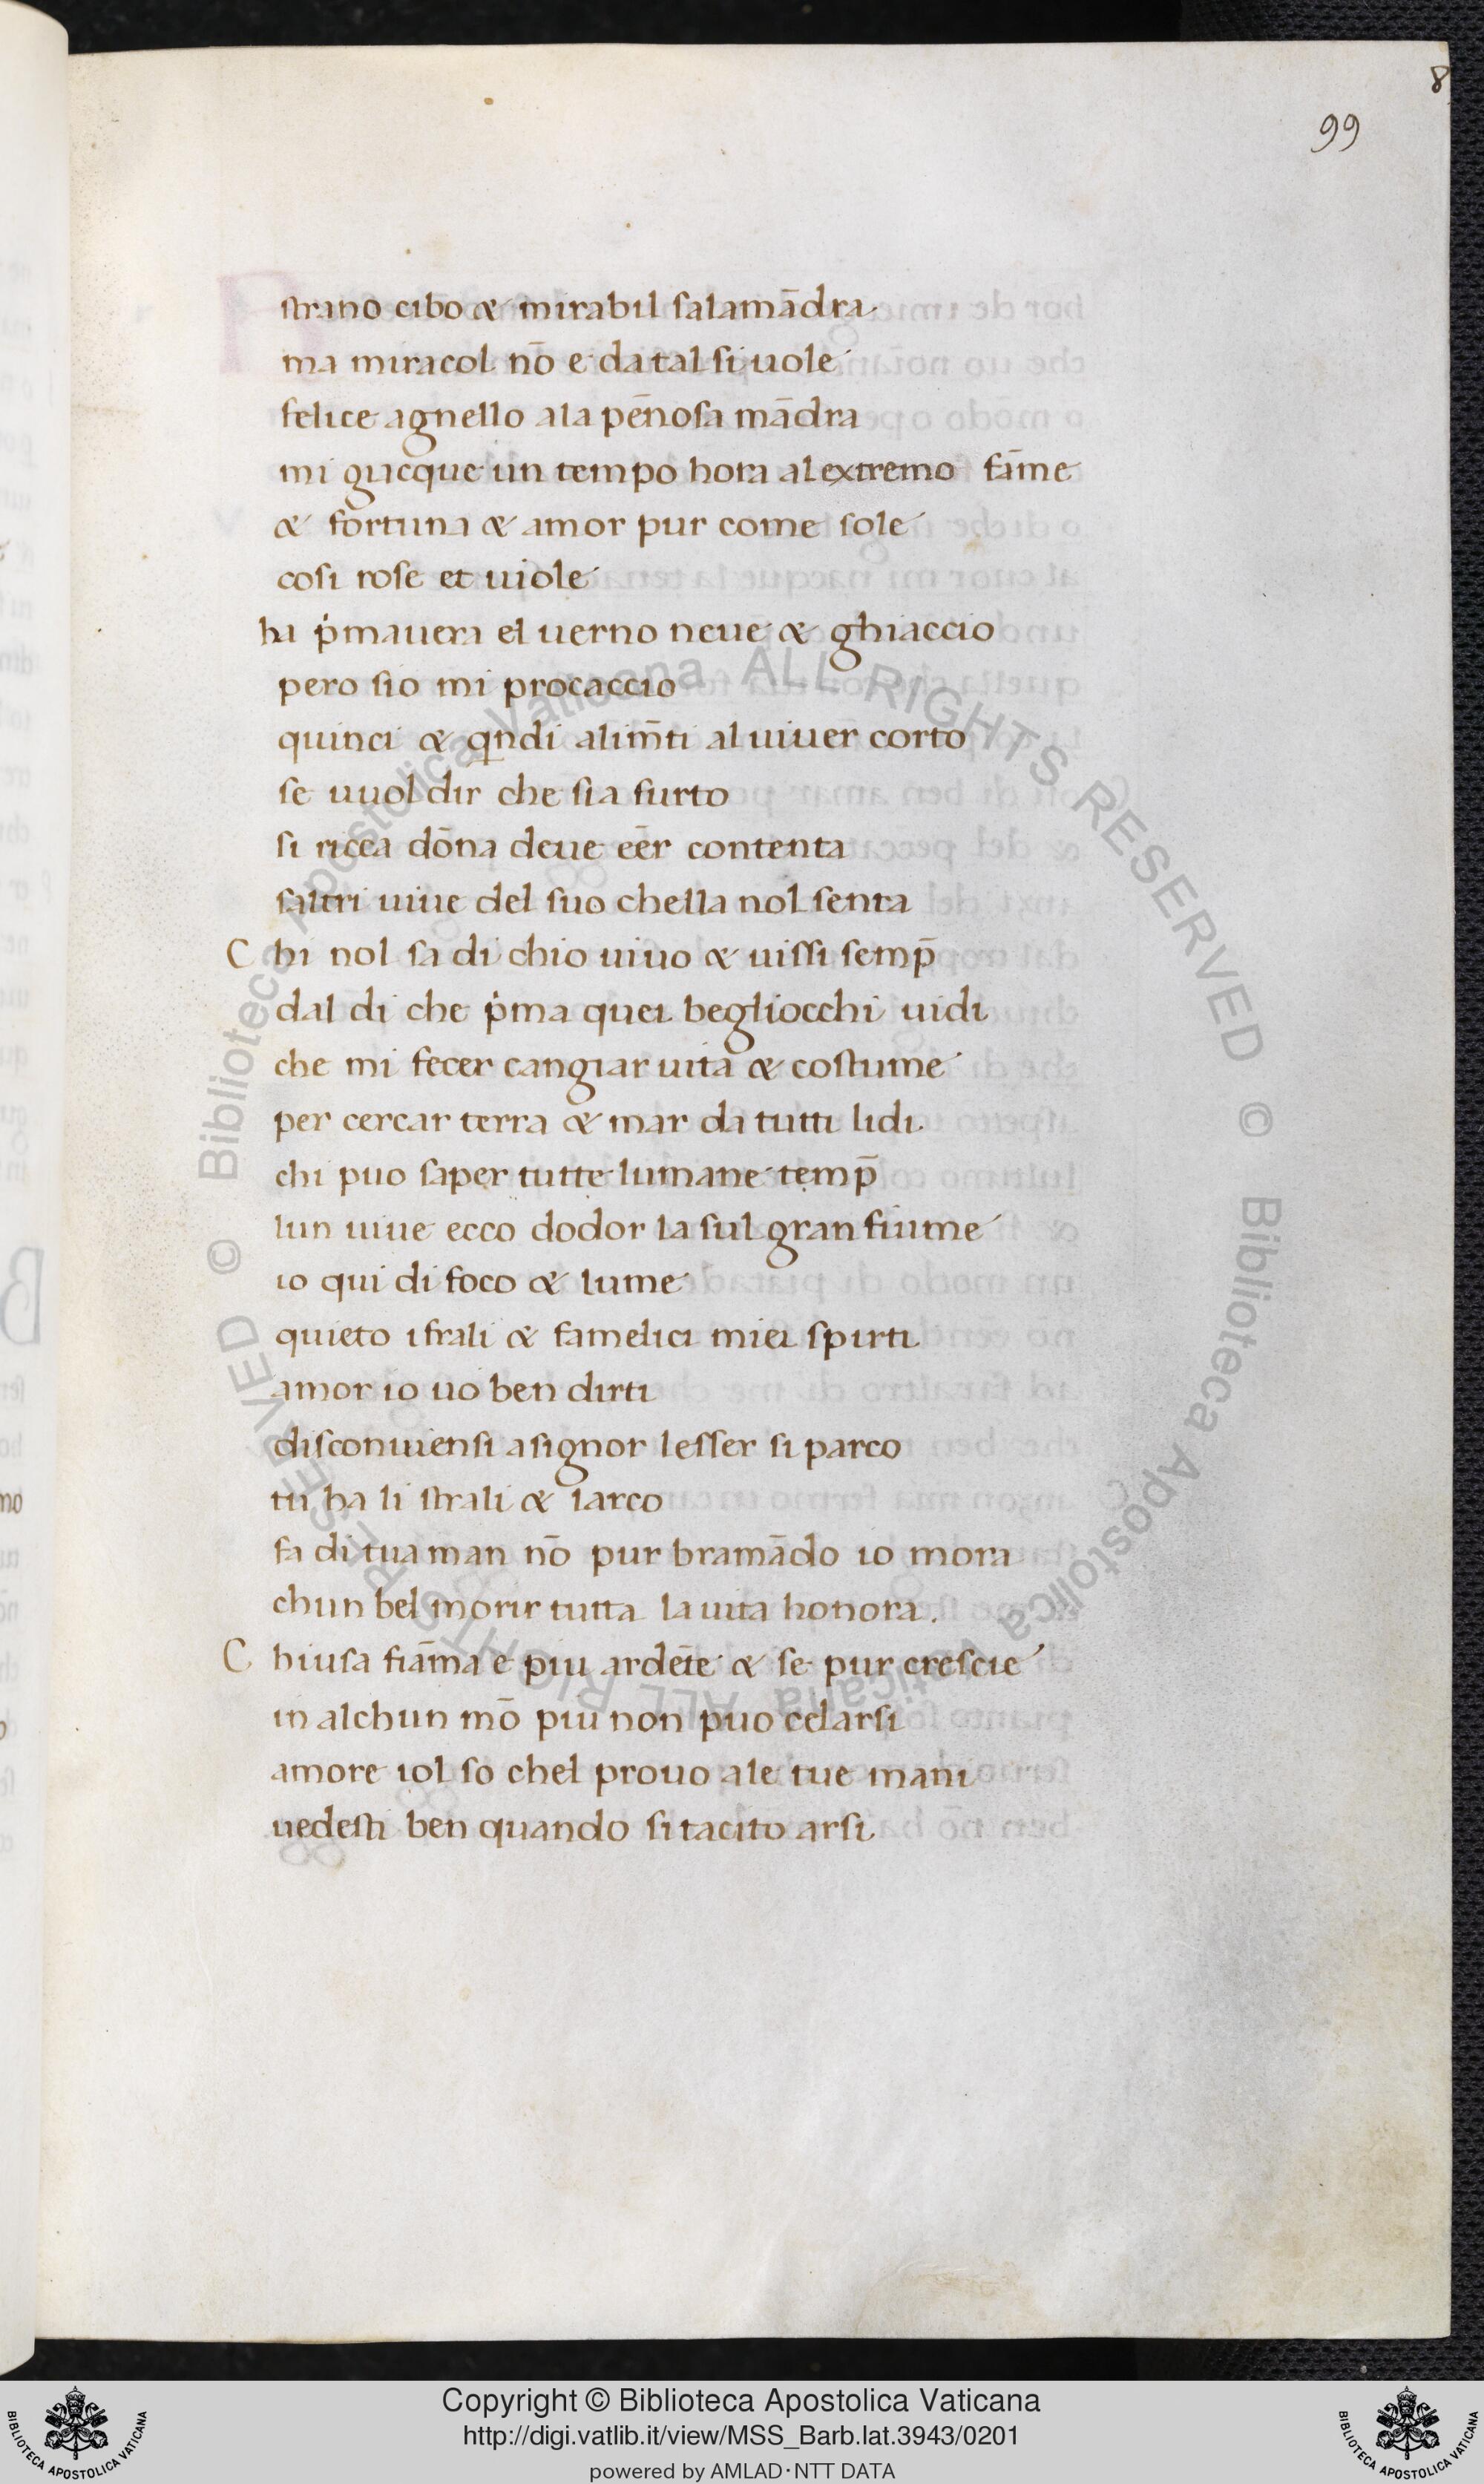 8
99
strano cibo & mirabil salamādra
ma miracol nō e da tal si uole
felice agnello ala pēnosa mādra
mi giacque un tempo hora al extremo fāme
& fortuna & amor pur come sole
cosi rose et uiole
ha p̍mauera el uerno neue & ghiaccio
pero sio mi procaccio
quinci & qͥndi alim̄ti al uiuer corto
se uuol dir che sia furto
si ricca dōna deue eēr contenta
saltri uiue del suo chella nol senta
C hi nol sa di chio uiuo & uissi semp̄
dal di che p̍ma quei begliocchi uidi
che mi fecer cangiar uita & costume
per cercar terra & mar da tutti lidi
chi puo saper tutte lumane temp̄
lun uiue ecco dodor la sul gran fiume
io qui di foco & lume
quieto i frali & famelici miei spirti
amor io uo ben dirti
disconuiensi a signor lesser si parco
tu ha li strali & larco
fa di tua man nō pur bramādo io mora
chun bel morir tutta la uita honora.
C hiusa fiāma e piu ardēte & se pur crescie
in alchun mō piu non puo celarsi
amore iol so chel prouo ale tue mani
uedesti ben quando si tacito arsi
Copyright © Biblioteca Apostolica Vaticana
http://digi.vatlib.it/view/MSS_Barb.lat.3943/0201
powered by AMLAD·NTT DATA
BIBLIOTECA APOSTOLICA VATICANA
BIBLIOTECA APOSTOLICA VATICANA
© Biblioteca Apostolica Vaticana ALL RIGHTS RESERVED © Biblioteca Apostolica Vaticana ALL RIGHTS RESERVED